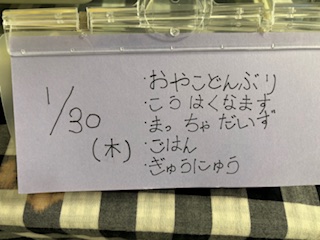 1/30
(木)
・おやこどんぶり
・こうはくなます
・まっちゃだいず
・ごはん
・ぎゅうにゅう